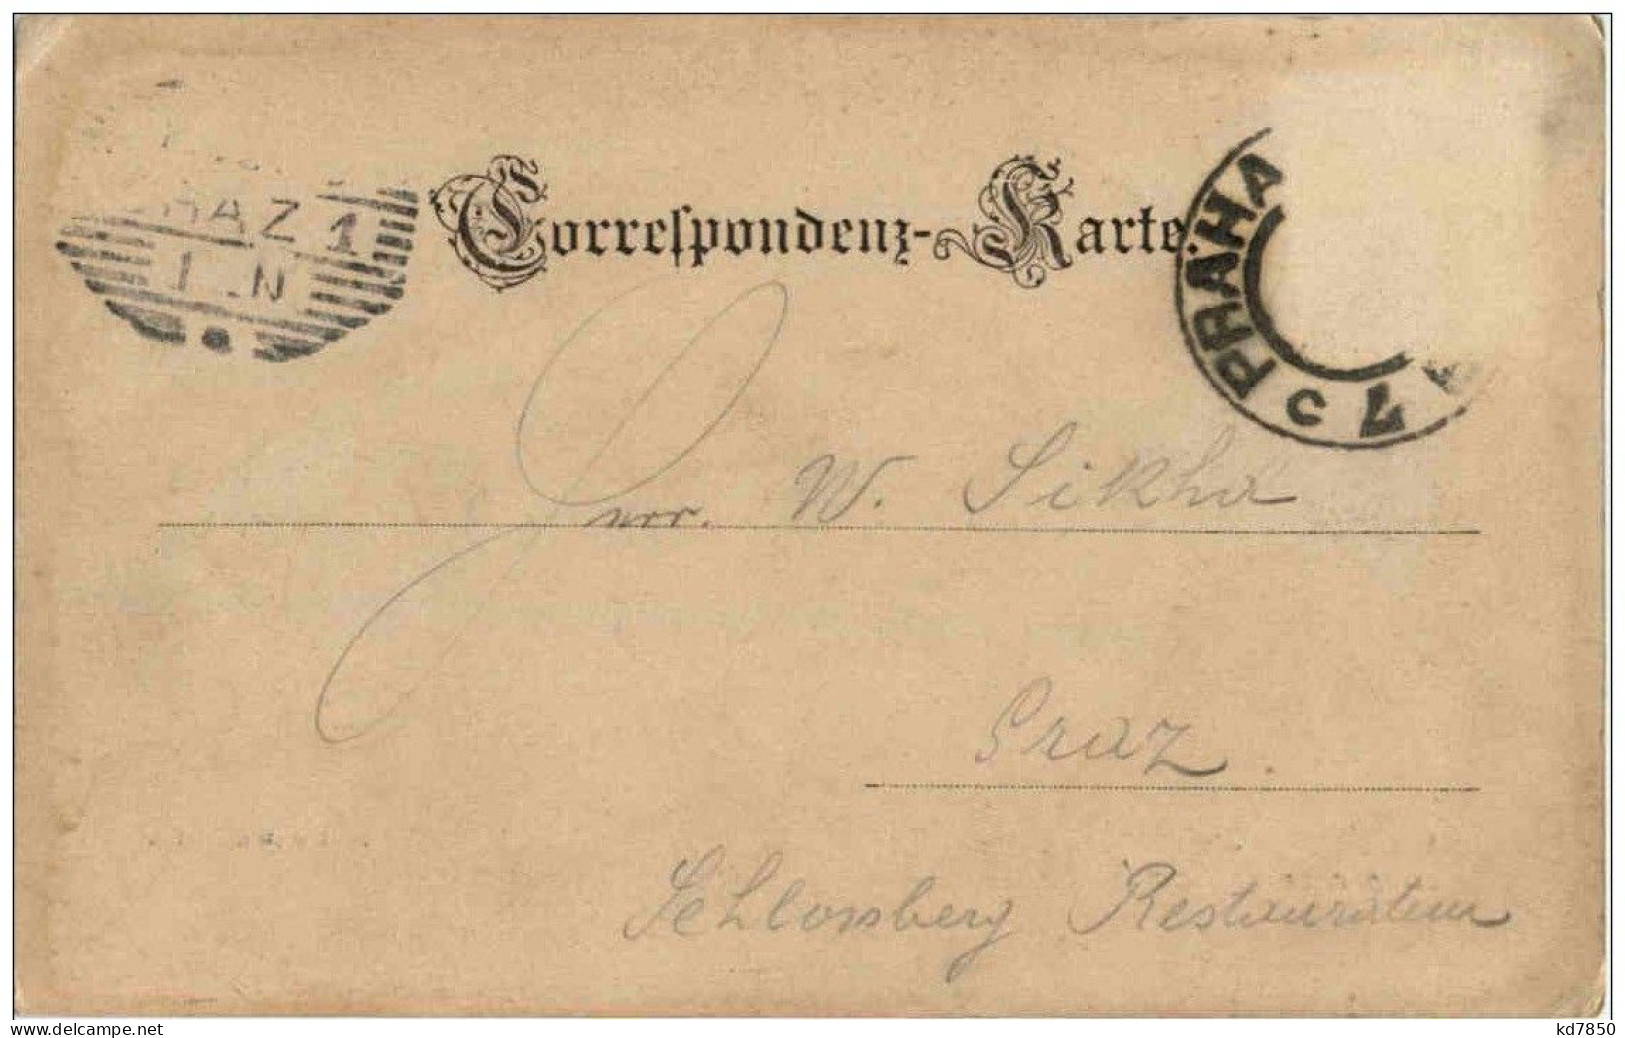 Correspondenz-Karte.
GRAZ 1
PRAHA
7
Herr. W. Sikha
Graz
Schlossberg Restauration
delcampe.net
kd7850